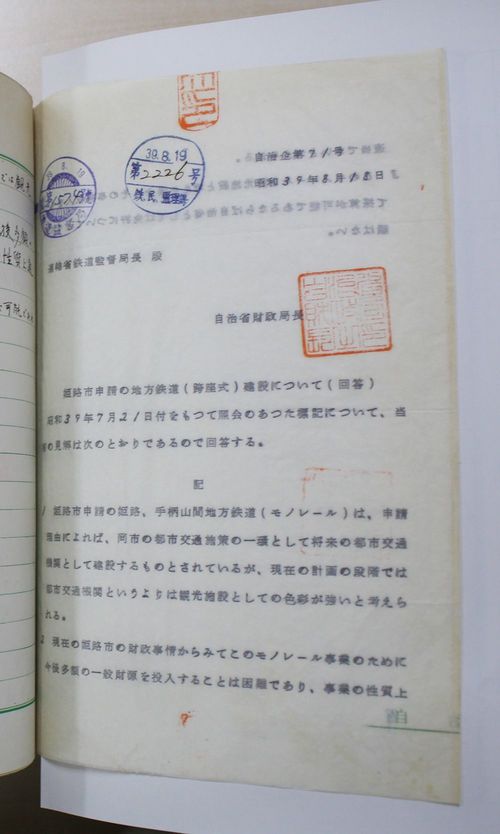 39.8.19
第2226号
統民.監理課
39.8.19
自治企第71号
昭和39年8月18日
運輸省鉄道監督局長 殿
自治省財政局長
姫路市申請の地方鉄道(跨座式)建設について(回答)
昭和39年7月21日付をもつて照会のあつた標記について、当
の見解は次のとおりであるので回答する。
記
1 姫路市申請の姫路、手柄山間地方鉄道(モノレール)は、申請
理由によれば、同市の都市交通施策の一環として将来の都市交通
機関として建設するものとされているが、現在の計画の段階では
都市交通機関というよりは観光施設としての色彩が強いと考えら
れる。
2 現在の姫路市の財政事情からみてこのモノレール事業のために
今後多額の一般財源を投入することは困難であり、事業の性質上